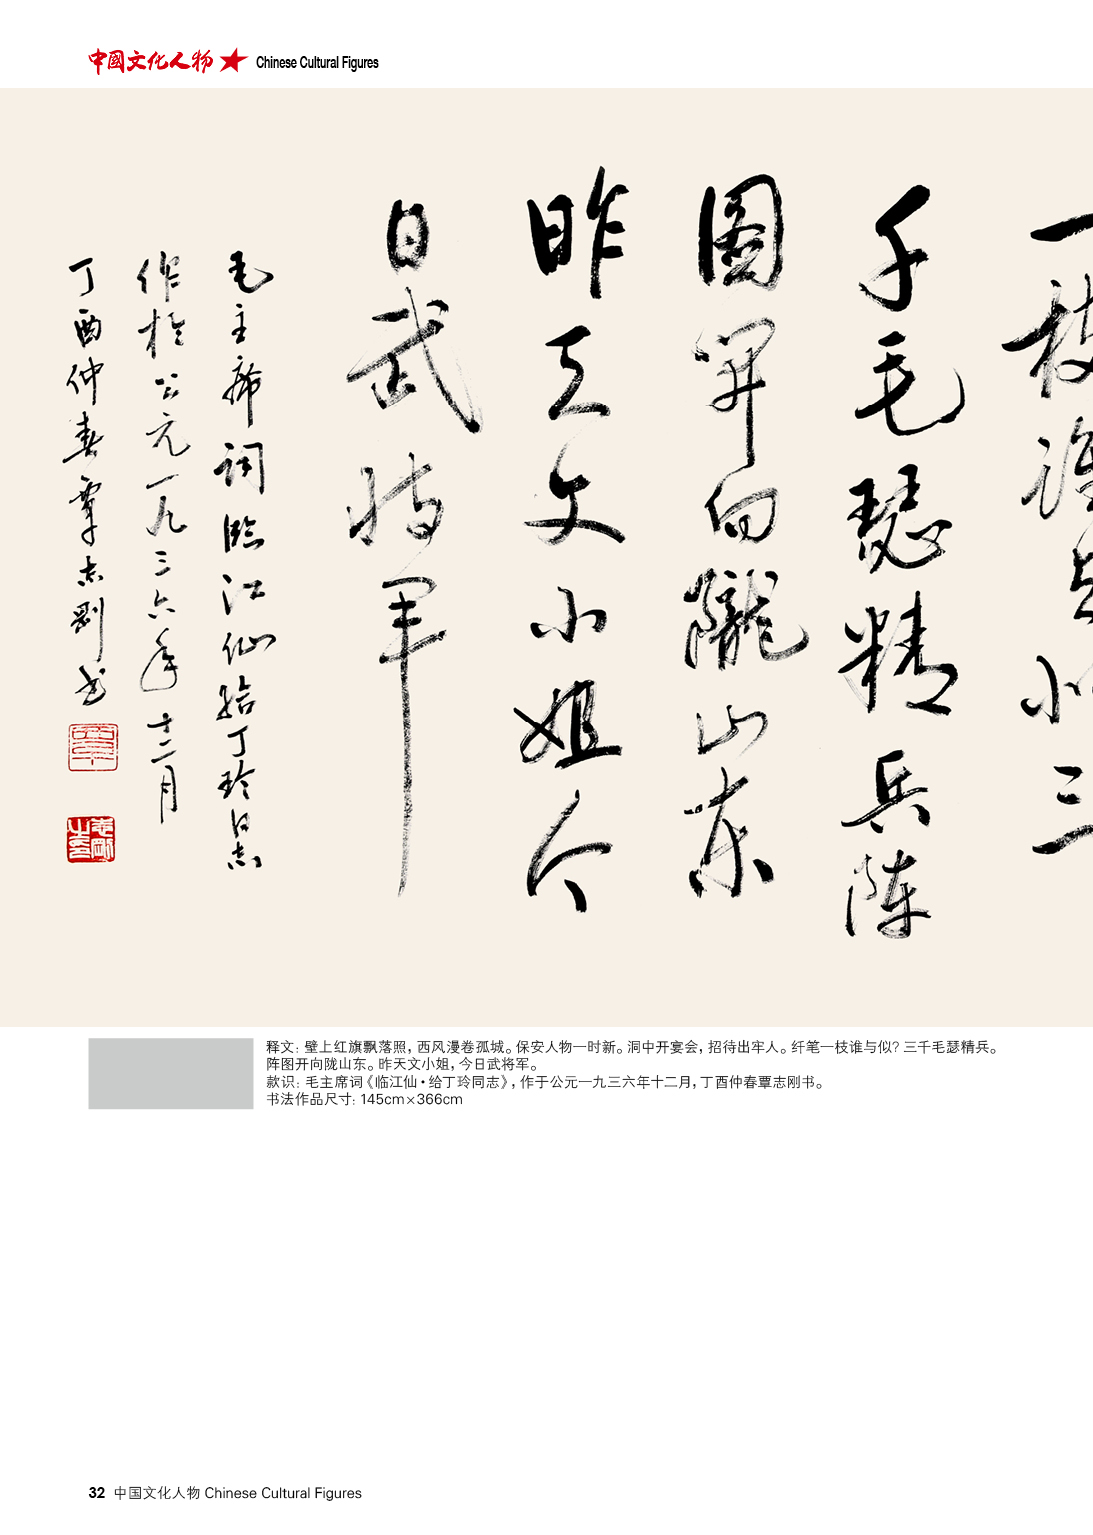 中國文化人物 Chinese Cultural Figures
一枝誰與似三
千毛瑟精兵陣
圖開向隴山东
昨天文小姐今
日武将军
毛主席词臨江仙给丁玲同志
作於公元一九三六年十二月
丁酉仲春覃志剛书
志剛之印
释文：壁上红旗飘落照，西风漫卷孤城。保安人物一时新。洞中开宴会，招待出牢人。纤笔一枝谁与似？三千毛瑟精兵。
阵图开向陇山东。昨天文小姐，今日武将军。
款识：毛主席词《临江仙·给丁玲同志》，作于公元一九三六年十二月，丁酉仲春覃志刚书。
书法作品尺寸：145cm×366cm
32 中国文化人物 Chinese Cultural Figures